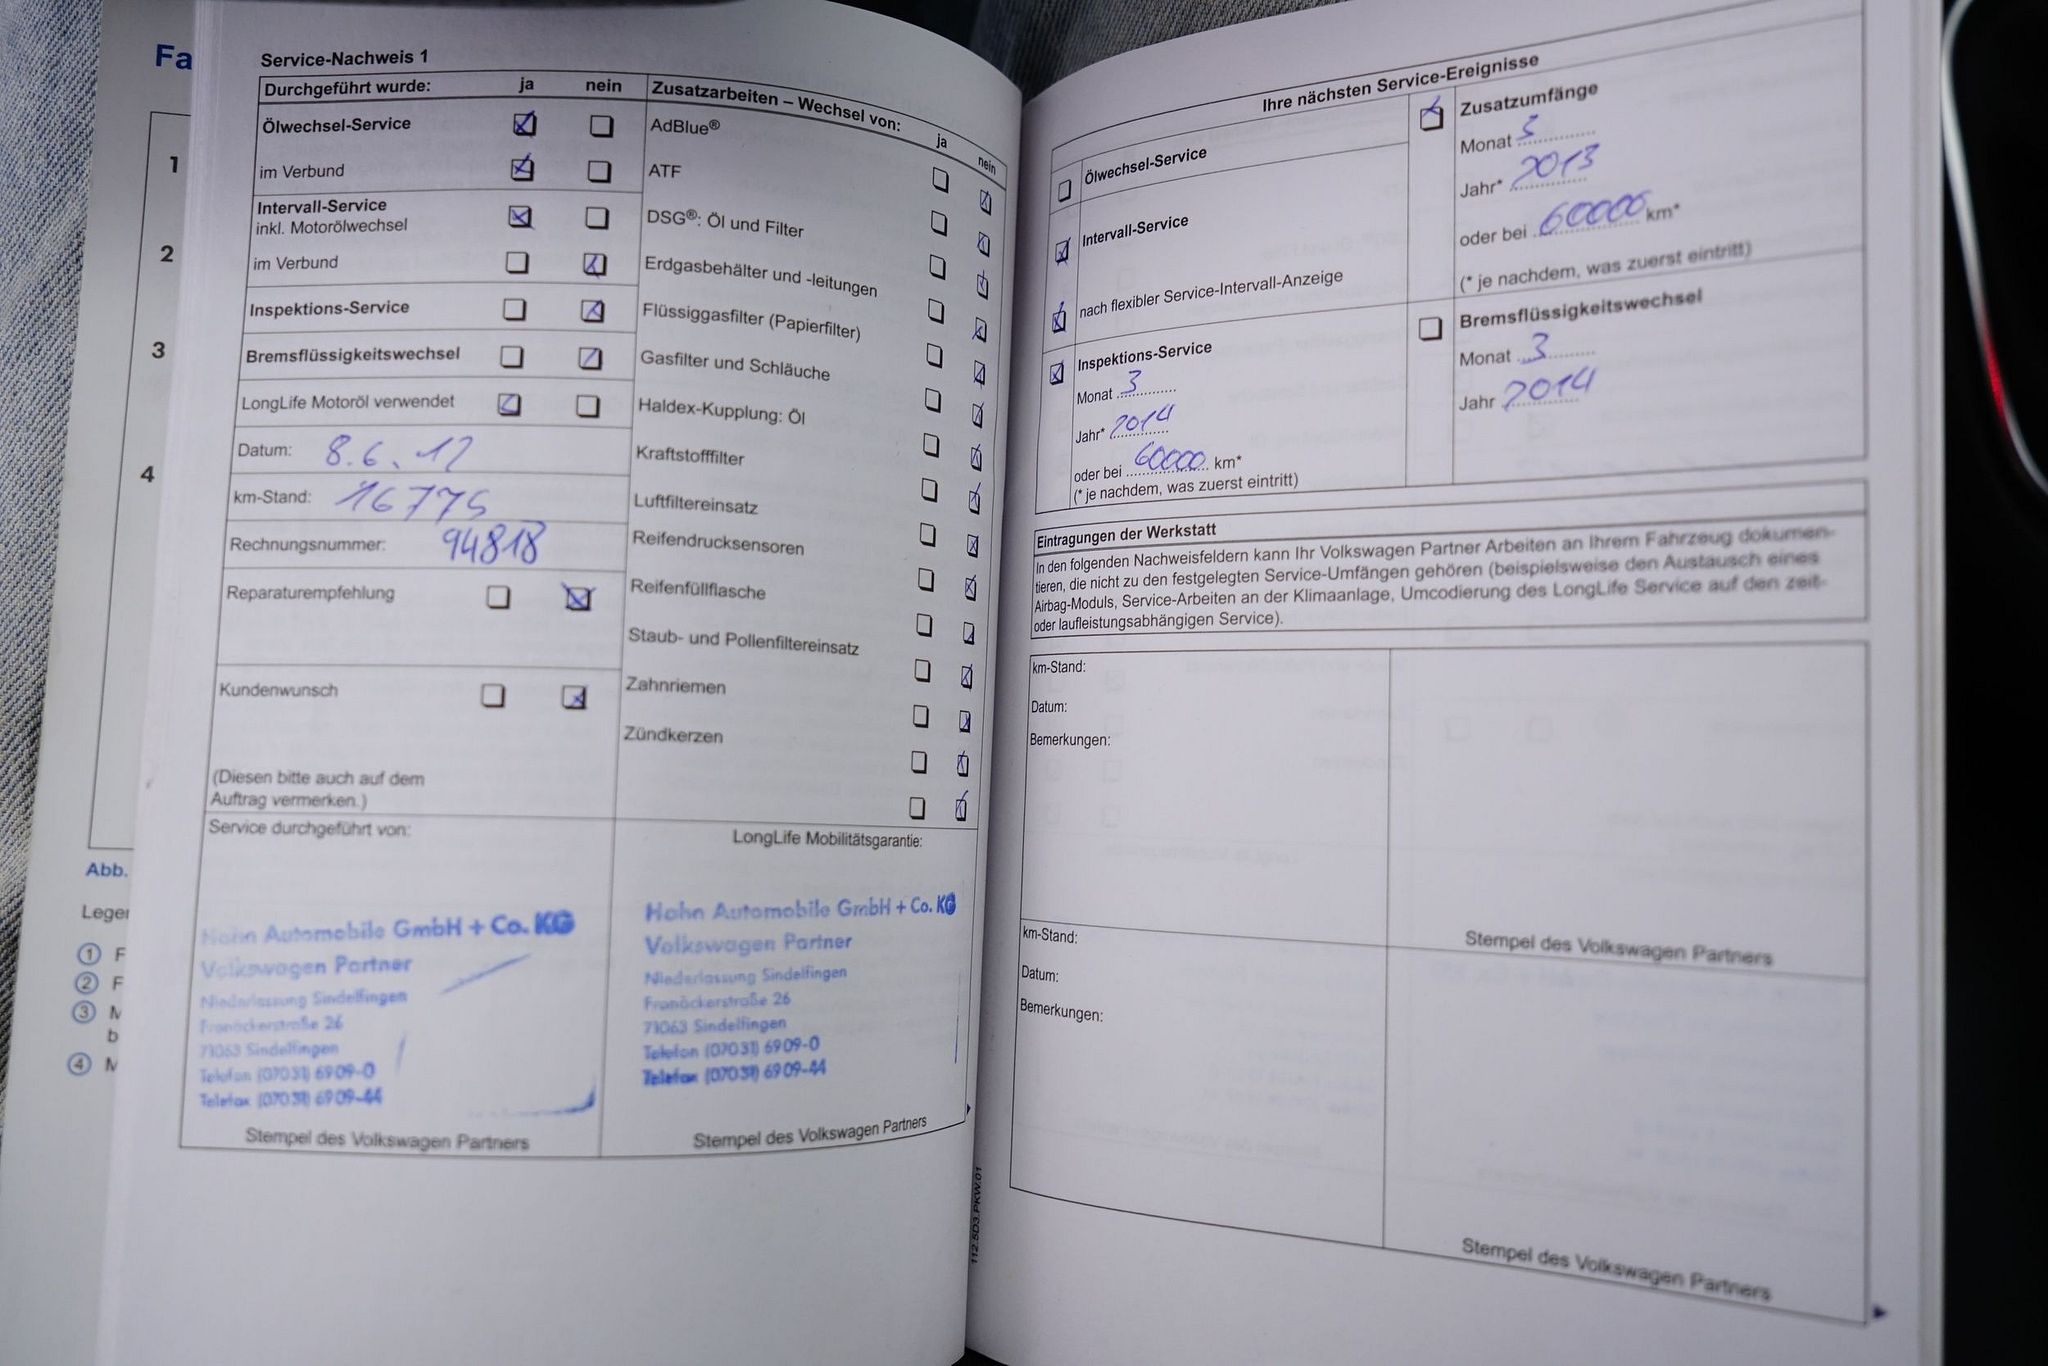 Fa
1
2
3
4
Abb.
Legen
1 F
2 F
3 M
b
4 M
Service-Nachweis 1
Durchgeführt wurde: ja nein
Ölwechsel-Service
im Verbund
Intervall-Service
inkl. Motorölwechsel
im Verbund
Inspektions-Service
Bremsflüssigkeitswechsel
LongLife Motoröl verwendet
Datum: 8.6.12
km-Stand: 16775
Rechnungsnummer: 94818
Reparaturempfehlung
Kundenwunsch
(Diesen bitte auch auf dem
Auftrag vermerken.)
Service durchgeführt von:
Hahn Automobile GmbH + Co. KG
Volkswagen Partner
Niederlassung Sindelfingen
Fronäckerstraße 26
71063 Sindelfingen
Telefon (07031) 6909-0
Telefax (07031) 6909-44
Stempel des Volkswagen Partners
Zusatzarbeiten – Wechsel von: ja nein
AdBlue®
ATF
DSG®: Öl und Filter
Erdgasbehälter und -leitungen
Flüssiggasfilter (Papierfilter)
Gasfilter und Schläuche
Haldex-Kupplung: Öl
Kraftstofffilter
Luftfiltereinsatz
Reifendrucksensoren
Reifenfüllflasche
Staub- und Pollenfiltereinsatz
Zahnriemen
Zündkerzen
LongLife Mobilitätsgarantie:
Hahn Automobile GmbH + Co. KG
Volkswagen Partner
Niederlassung Sindelfingen
Fronäckerstraße 26
71063 Sindelfingen
Telefon (07031) 6909-0
Telefax (07031) 6909-44
Stempel des Volkswagen Partners
112.5D3.PKW.01
Ihre nächsten Service-Ereignisse
Ölwechsel-Service
Intervall-Service
nach flexibler Service-Intervall-Anzeige
Inspektions-Service
Monat 3
Jahr* 2014
oder bei 60000 km*
(* je nachdem, was zuerst eintritt)
Zusatzumfänge
Monat 3
Jahr* 2013
oder bei 60000 km*
(* je nachdem, was zuerst eintritt)
Bremsflüssigkeitswechsel
Monat 3
Jahr 2014
Eintragungen der Werkstatt
In den folgenden Nachweisfeldern kann Ihr Volkswagen Partner Arbeiten an Ihrem Fahrzeug dokumen-
tieren, die nicht zu den festgelegten Service-Umfängen gehören (beispielsweise den Austausch eines
Airbag-Moduls, Service-Arbeiten an der Klimaanlage, Umcodierung des LongLife Service auf den zeit-
oder laufleistungsabhängigen Service).
km-Stand:
Datum:
Bemerkungen:
Stempel des Volkswagen Partners
km-Stand:
Datum:
Bemerkungen:
Stempel des Volkswagen Partners